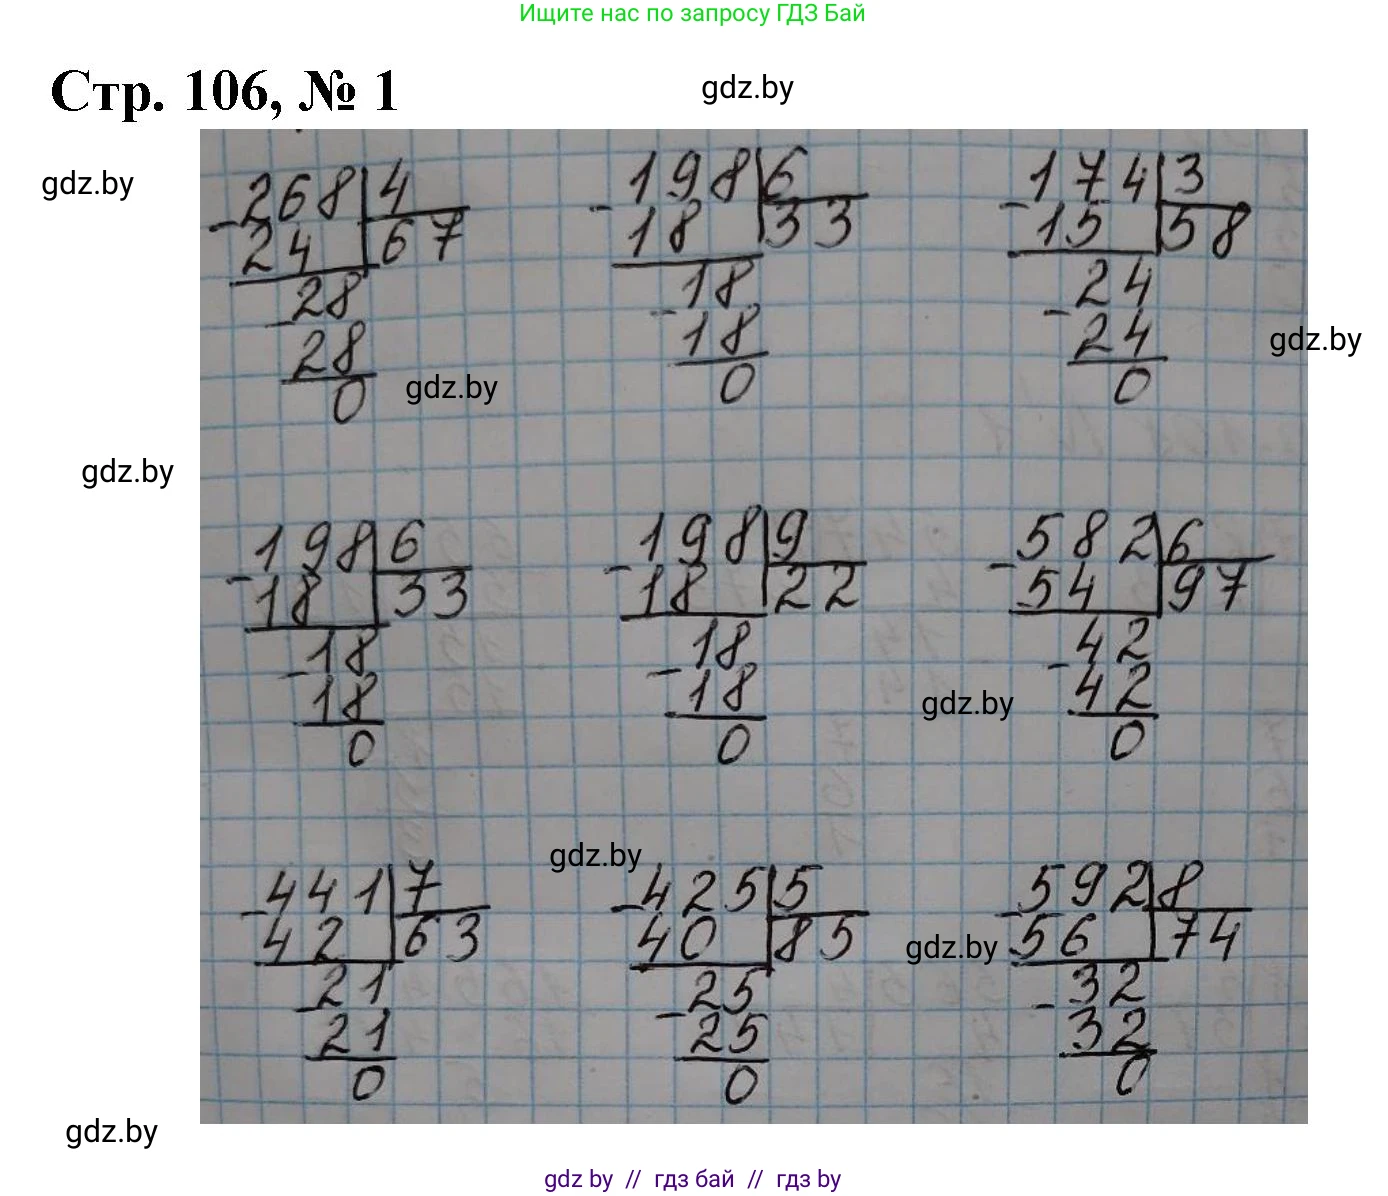 Ищите нас по запросу ГДЗ Бай
Стр. 106, № 1
gdz.by
gdz.by
268 4 198 6 174 3
- 24 67 - 18 33 - 15 58
28 18 24
- 28 - 18 - 24
0 0 0
gdz.by
gdz.by
gdz.by
198 6 198 9 582 6
- 18 33 - 18 22 - 54 97
18 18 42
- 18 - 18 - 42
0 0 0
gdz.by
gdz.by
441 7 425 5 592 8
- 42 63 - 40 85 - 56 74
gdz.by
21 25 32
- 21 - 25 - 32
0 0 0
gdz.by
gdz by // гдз бай // гдз by